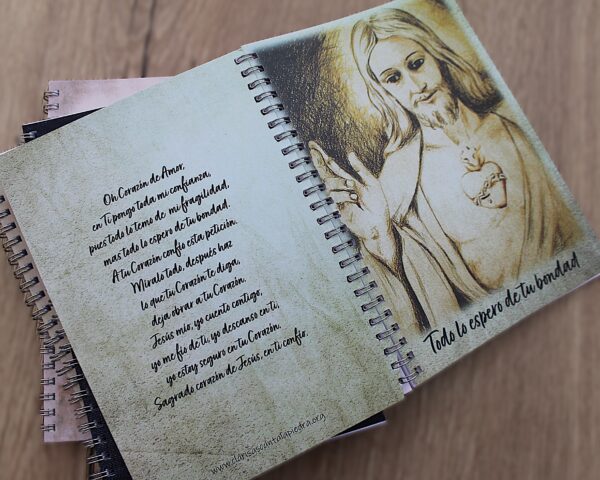 Oh Corazón de Amor,
en Ti pongo toda mi confianza,
pues todo lo temo de mi fragilidad,
mas todo lo espero de tu bondad.
A tu Corazón confío esta petición.
Míralo todo, después haz
lo que tu Corazón te diga,
deja obrar a tu Corazón.
Jesús mío, yo cuento contigo,
yo me fío de ti, yo descanso en ti,
yo estoy seguro en tu Corazón.
Sagrado corazón de Jesús, en ti confío.
Todo lo espero de tu bondad